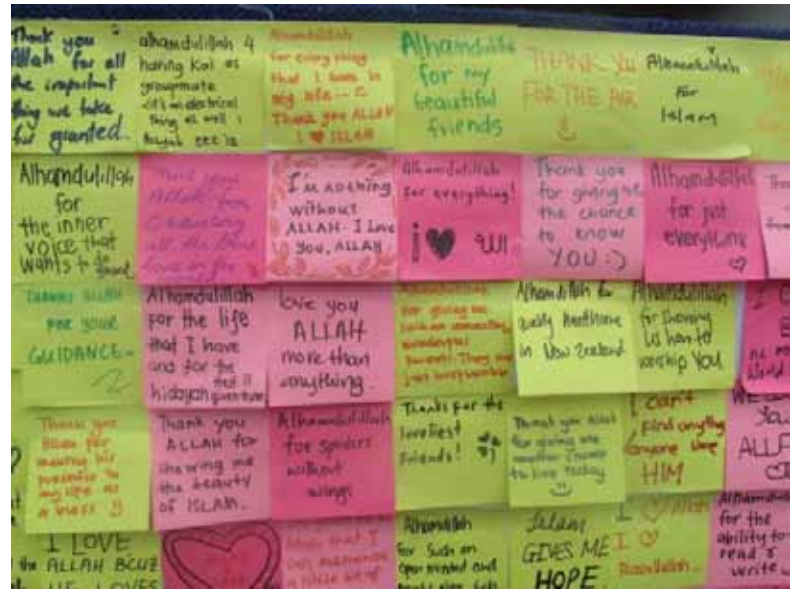 Thank you
Allah for all
the important
thing we take
for granted.
alhamdulillah 4
having Kak as
groupmate
thing as well
Alhamdulillah
for everything
that I have in
my life
Thank you ALLAH
I ♥ ISLAM
Alhamdulillah
for my
beautiful
friends
THANK YOU
FOR THE AIR
Alhamdulillah
for
Islam
Alhamdulillah
for
the inner
voice that
wants to
Allah for
I'm nothing
without
ALLAH. I Love
you, ALLAH
Alhamdulillah
for everything!
i ♥
Thank you
for giving me
the chance
to know
YOU :)
Alhamdulillah
for just
everything
♡
THANKS ALLAH
FOR YOUR
GUIDANCE
Alhamdulillah
for the life
that I have
and for the
hidayah
love you
ALLAH
more than
anything.
Alhamdulillah
for giving me
wonderful
parents. They
Alhamdulillah for
in New Zealand
Alhamdulillah
for showing
us how to
worship YOU
Thank you
Allah for
my life as
Thank you
ALLAH for
showing me
the beauty
of ISLAM.
Alhamdulillah
for spiders
without
wings
Thanks for the
loveliest
friends!
Thank you Allah
for giving me
another chance
to live today
I can't
find anything
anyone like
HIM
WE
You
I LOVE
ALLAH BCUZ
HE LOVES
Alhamdulillah
for such an
Islam
GIVES ME
HOPE.
I ♡ Allah
I ♡
Rasulullah
for the
ability to
read &
write